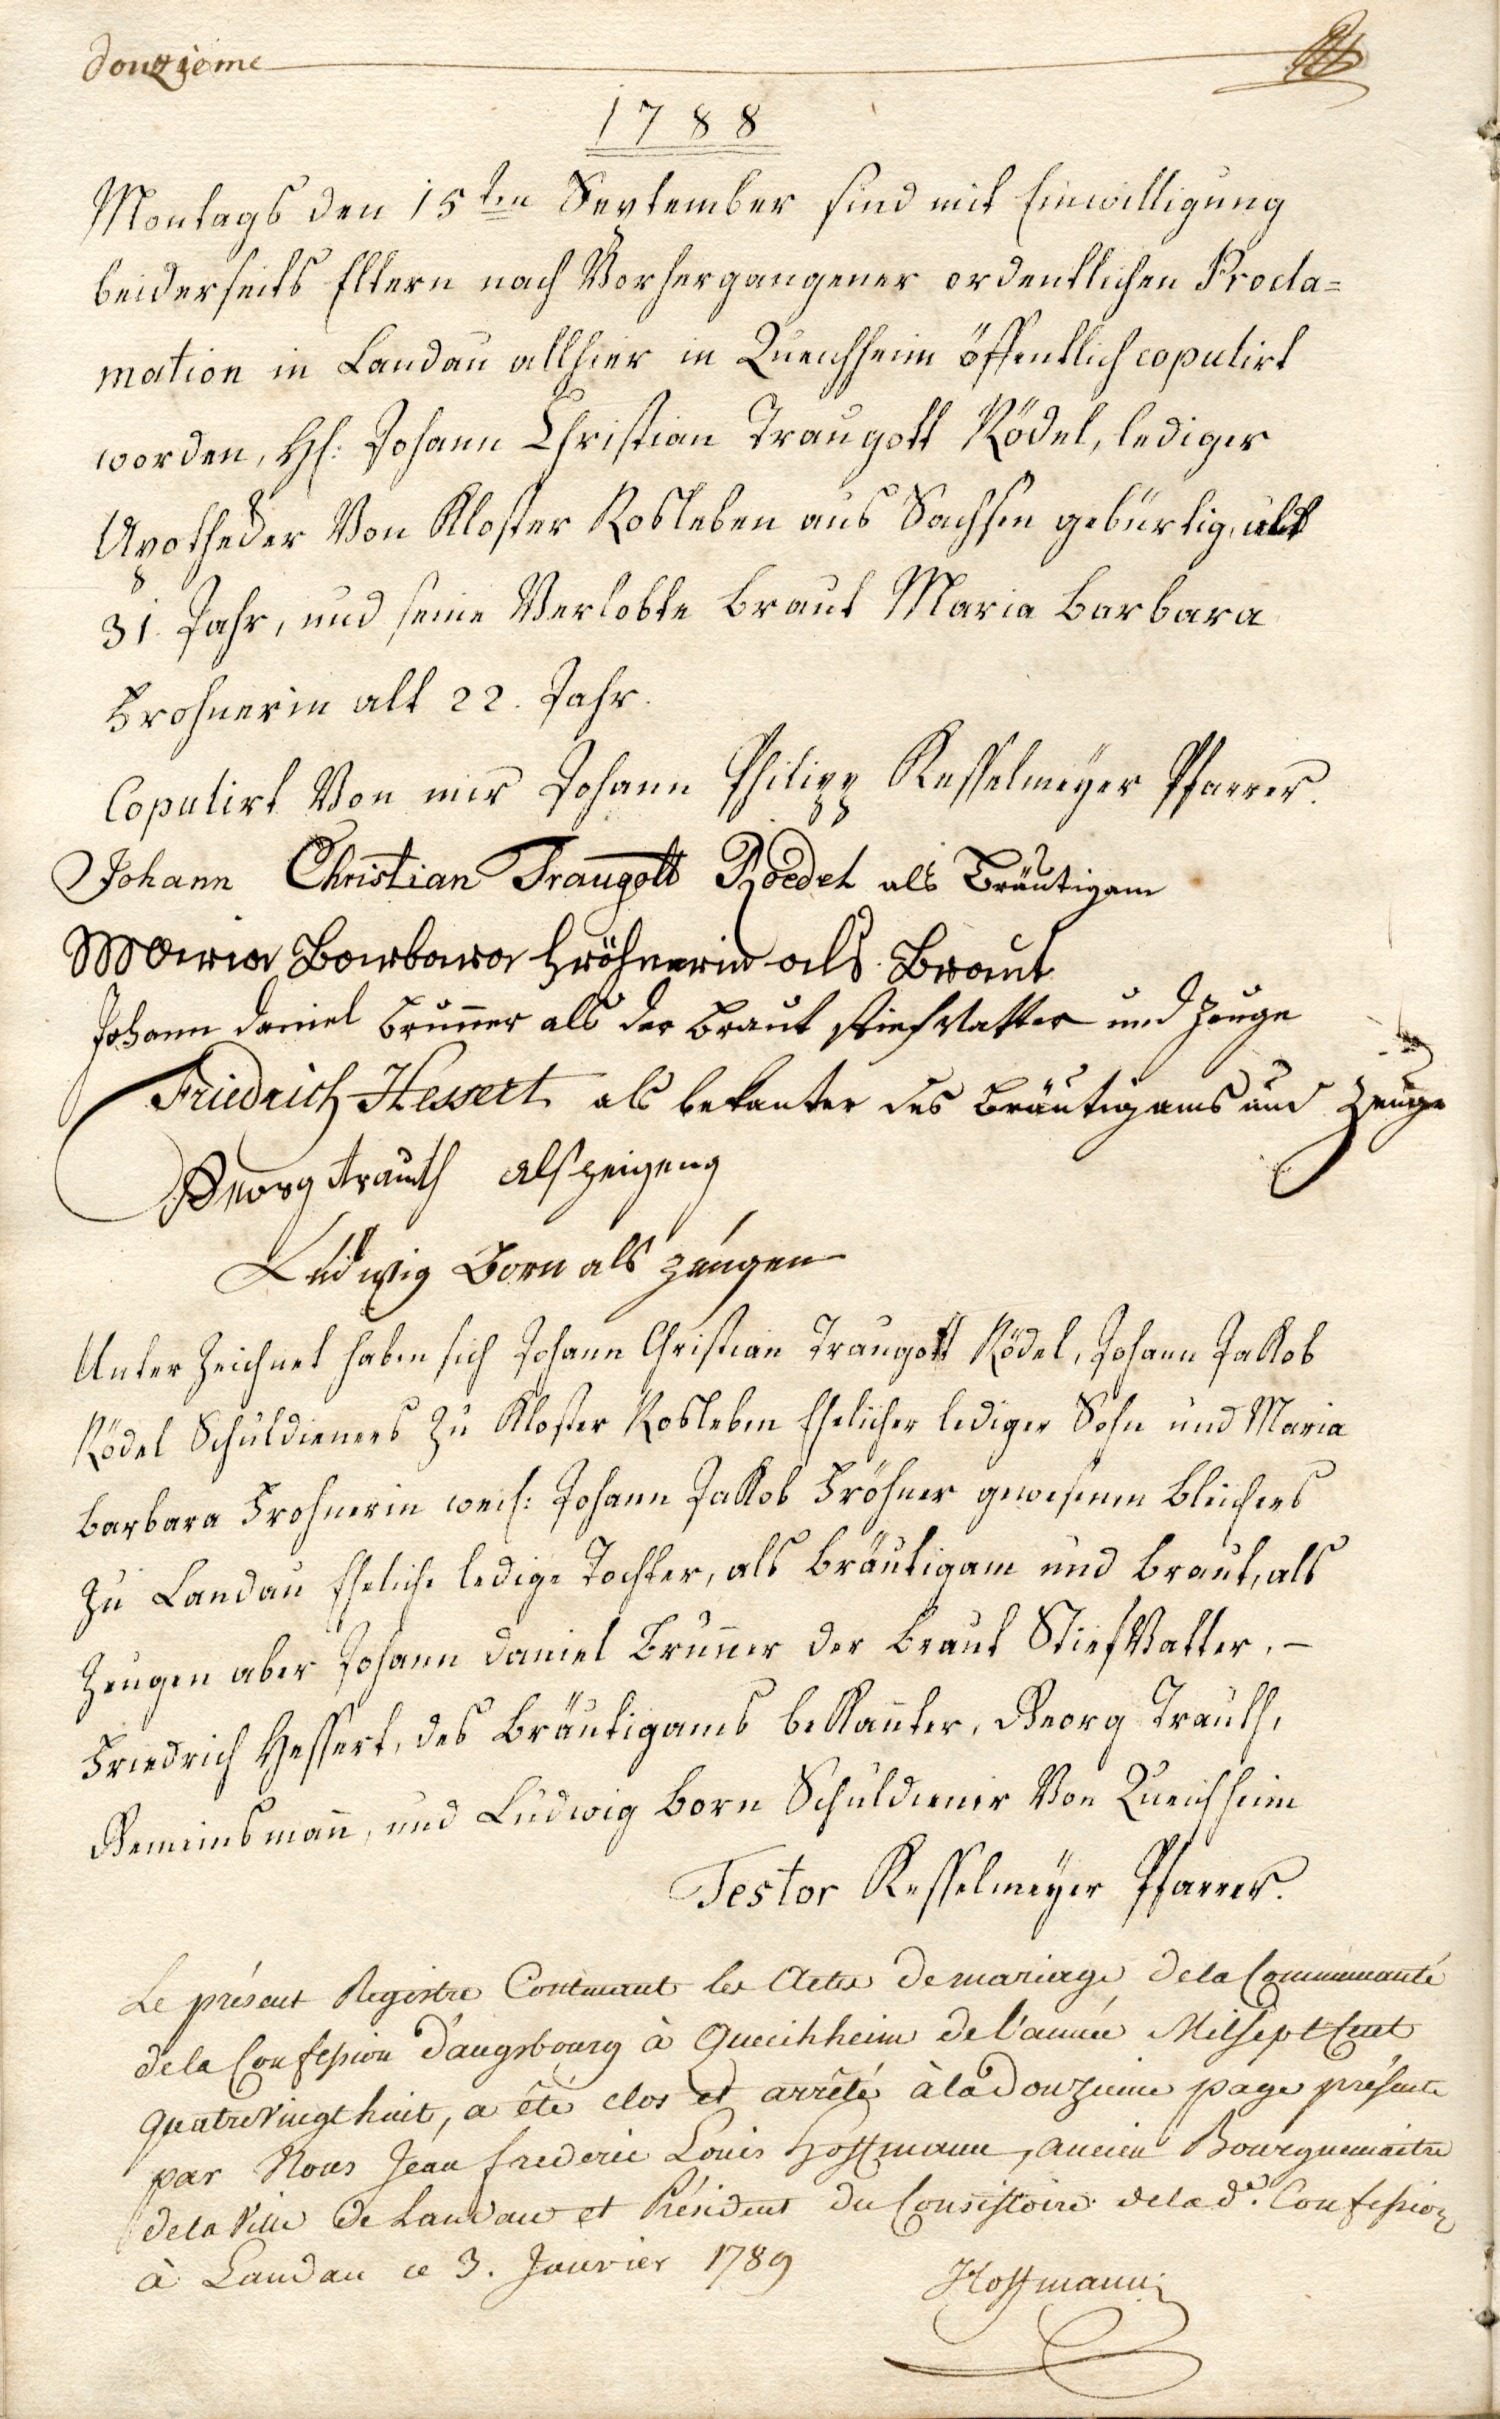 douzieme
1788
Montags den 15ten September sind mit Einwilligung
beiderseits Eltern nach Vorhergangener ordentlichen Procla=
mation in Landau allhier in Queichheim öffentlich copulirt
worden, H: Johann Christian Traugott Rödel, lediger
Apotheker Von Kloster Rosleben aus Sachsen gebürtig, alt
31. Jahr, und seine Verlobte Braut Maria Barbara
Frohnerin alt 22. Jahr.
Copulirt Von mir Johann Philipp Kesselmeÿer Pfarrer.
Johann Christian Traugott Roedel als Bräutigam
Maria Barbara fröhnerin als Braut
Johann daniel Brun̄er als der Braut stiefvatter und zeuge
Friedrich Hessert als bekanter des Bräutigams und Zeuge
Georg trauth als zeigeng
Ludwig Born als zeugen
Unter Zeichnet haben sich Johann Christian Traugott Rödel, Johann Jakob
Rödel Schuldieners zu Kloster Rosleben Ehelicher lediger Sohn und Maria
Barbara Frohnerin weil: Johann Jakob Fröhner gewesenen Bleichers
zu Landau Eheliche ledige Tochter, als Bräutigam und Braut, als
Zeugen aber Johann Daniel Brun̄er der Braut StiefVatter, –
Friedrich Hessert, des Bräutigams bekan̄ter, Georg Trauth,
Gemeinsman̄, und Ludwig Born Schuldiener Von Queichheim
Testor Kesselmeÿer Pfarrer.
Le présent Registre Contenant les Actes de mariage de la Communauté
de la Confession d'augsbourg à Queichheim de l'année Mil sept Cent
quatre Vingt huit, a été clos et arrêté à la Douzieme page présente
par Nous Jean frederic Louis Hoffmann, ancien Bourguemaitre
de la Ville de Landau et Président du Consistoire de la de. Confession
à Landau ce 3. Janvier 1789
Hoffmann